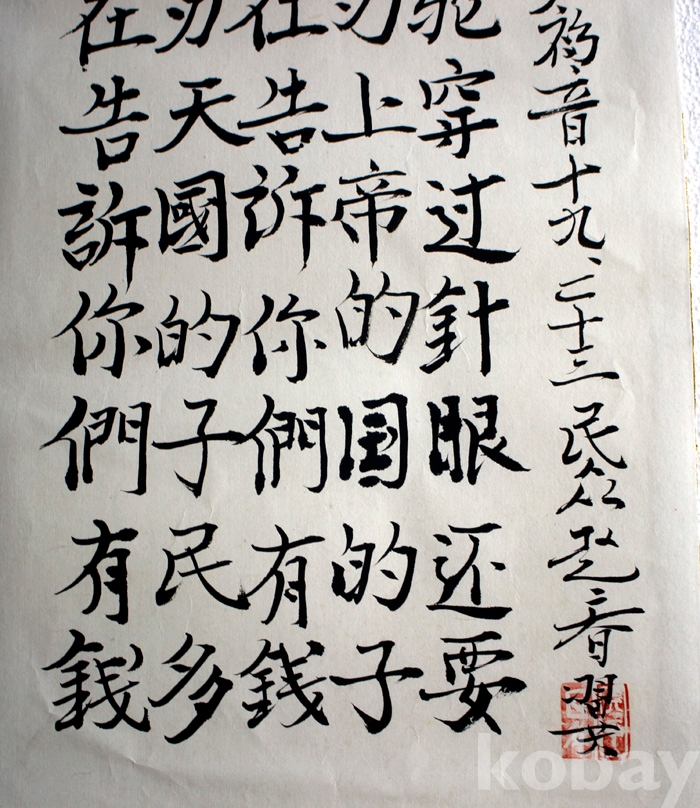 在告訴你們有錢
为天國的子民多
在告訴你們有銭
为上帝的国的子
驼穿过針眼还要
福音十九、二十三民众赵春翼
kobay